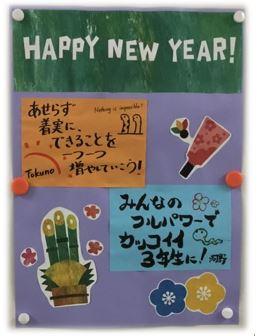 HAPPY NEW YEAR!
Nothing is impossible!
あせらず
着実に、
できることを
一つ一つ
増やしていこう!
Tokuno
みんなの
フルパワーで
カッコイイ
3年生に!
河野